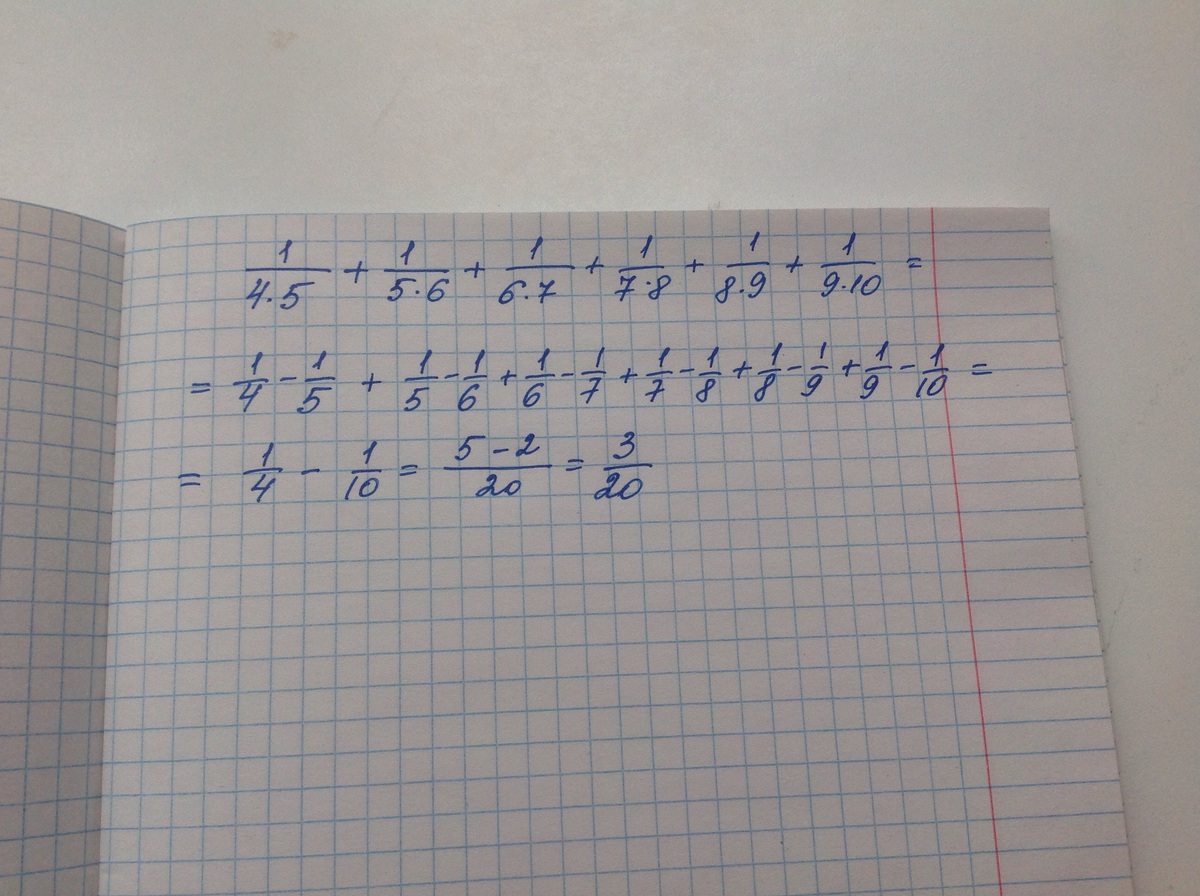 1/(4·5) + 1/(5·6) + 1/(6·7) + 1/(7·8) + 1/(8·9) + 1/(9·10) =
= 1/4 - 1/5 + 1/5 - 1/6 + 1/6 - 1/7 + 1/7 - 1/8 + 1/8 - 1/9 + 1/9 - 1/10 =
= 1/4 - 1/10 = (5-2)/20 = 3/20